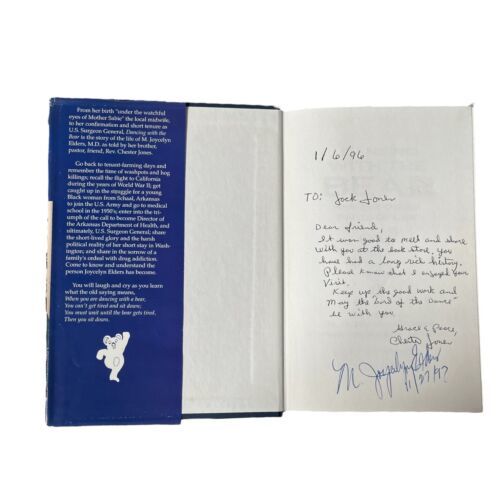 From her birth "under the watchful
eyes of Mother Sabie" the local midwife,
to her confirmation and short tenure as
U.S. Surgeon General, Dancing with the
Bear is the story of the life of M. Joycelyn
Elders, M.D. as told by her brother,
pastor, friend, Rev. Chester Jones.
Go back to tenant-farming days and
remember the time of washpots and hog
killings; recall the flight to California
during the years of World War II; get
caught up in the struggle for a young
Black woman from Schaal, Arkansas
to join the U.S. Army and go to medical
school in the 1950's; enter into the tri-
umph of the call to become Director of
the Arkansas Department of Health, and
ultimately, U.S. Surgeon General; share
the short-lived glory and the harsh
political reality of her short stay in Wash-
ington; and share in the sorrow of a
family's ordeal with drug addiction.
Come to know and understand the
person Joycelyn Elders has become.
You will laugh and cry as you learn
what the old saying means,
When you are dancing with a bear,
You can't get tired and sit down;
You must wait until the bear gets tired,
Then you sit down.
1/6/96
TO: Jack Jones
Dear friend,
It was good to meet and share
with you at the book store, you
have had a long rich history.
Please know that I enjoyed your
visit.
Keep up the good work and
May the "Lord of the Dance"
be with you.
Grace & Peace,
Chester Jones
M. Joycelyn Elders
11/27/97